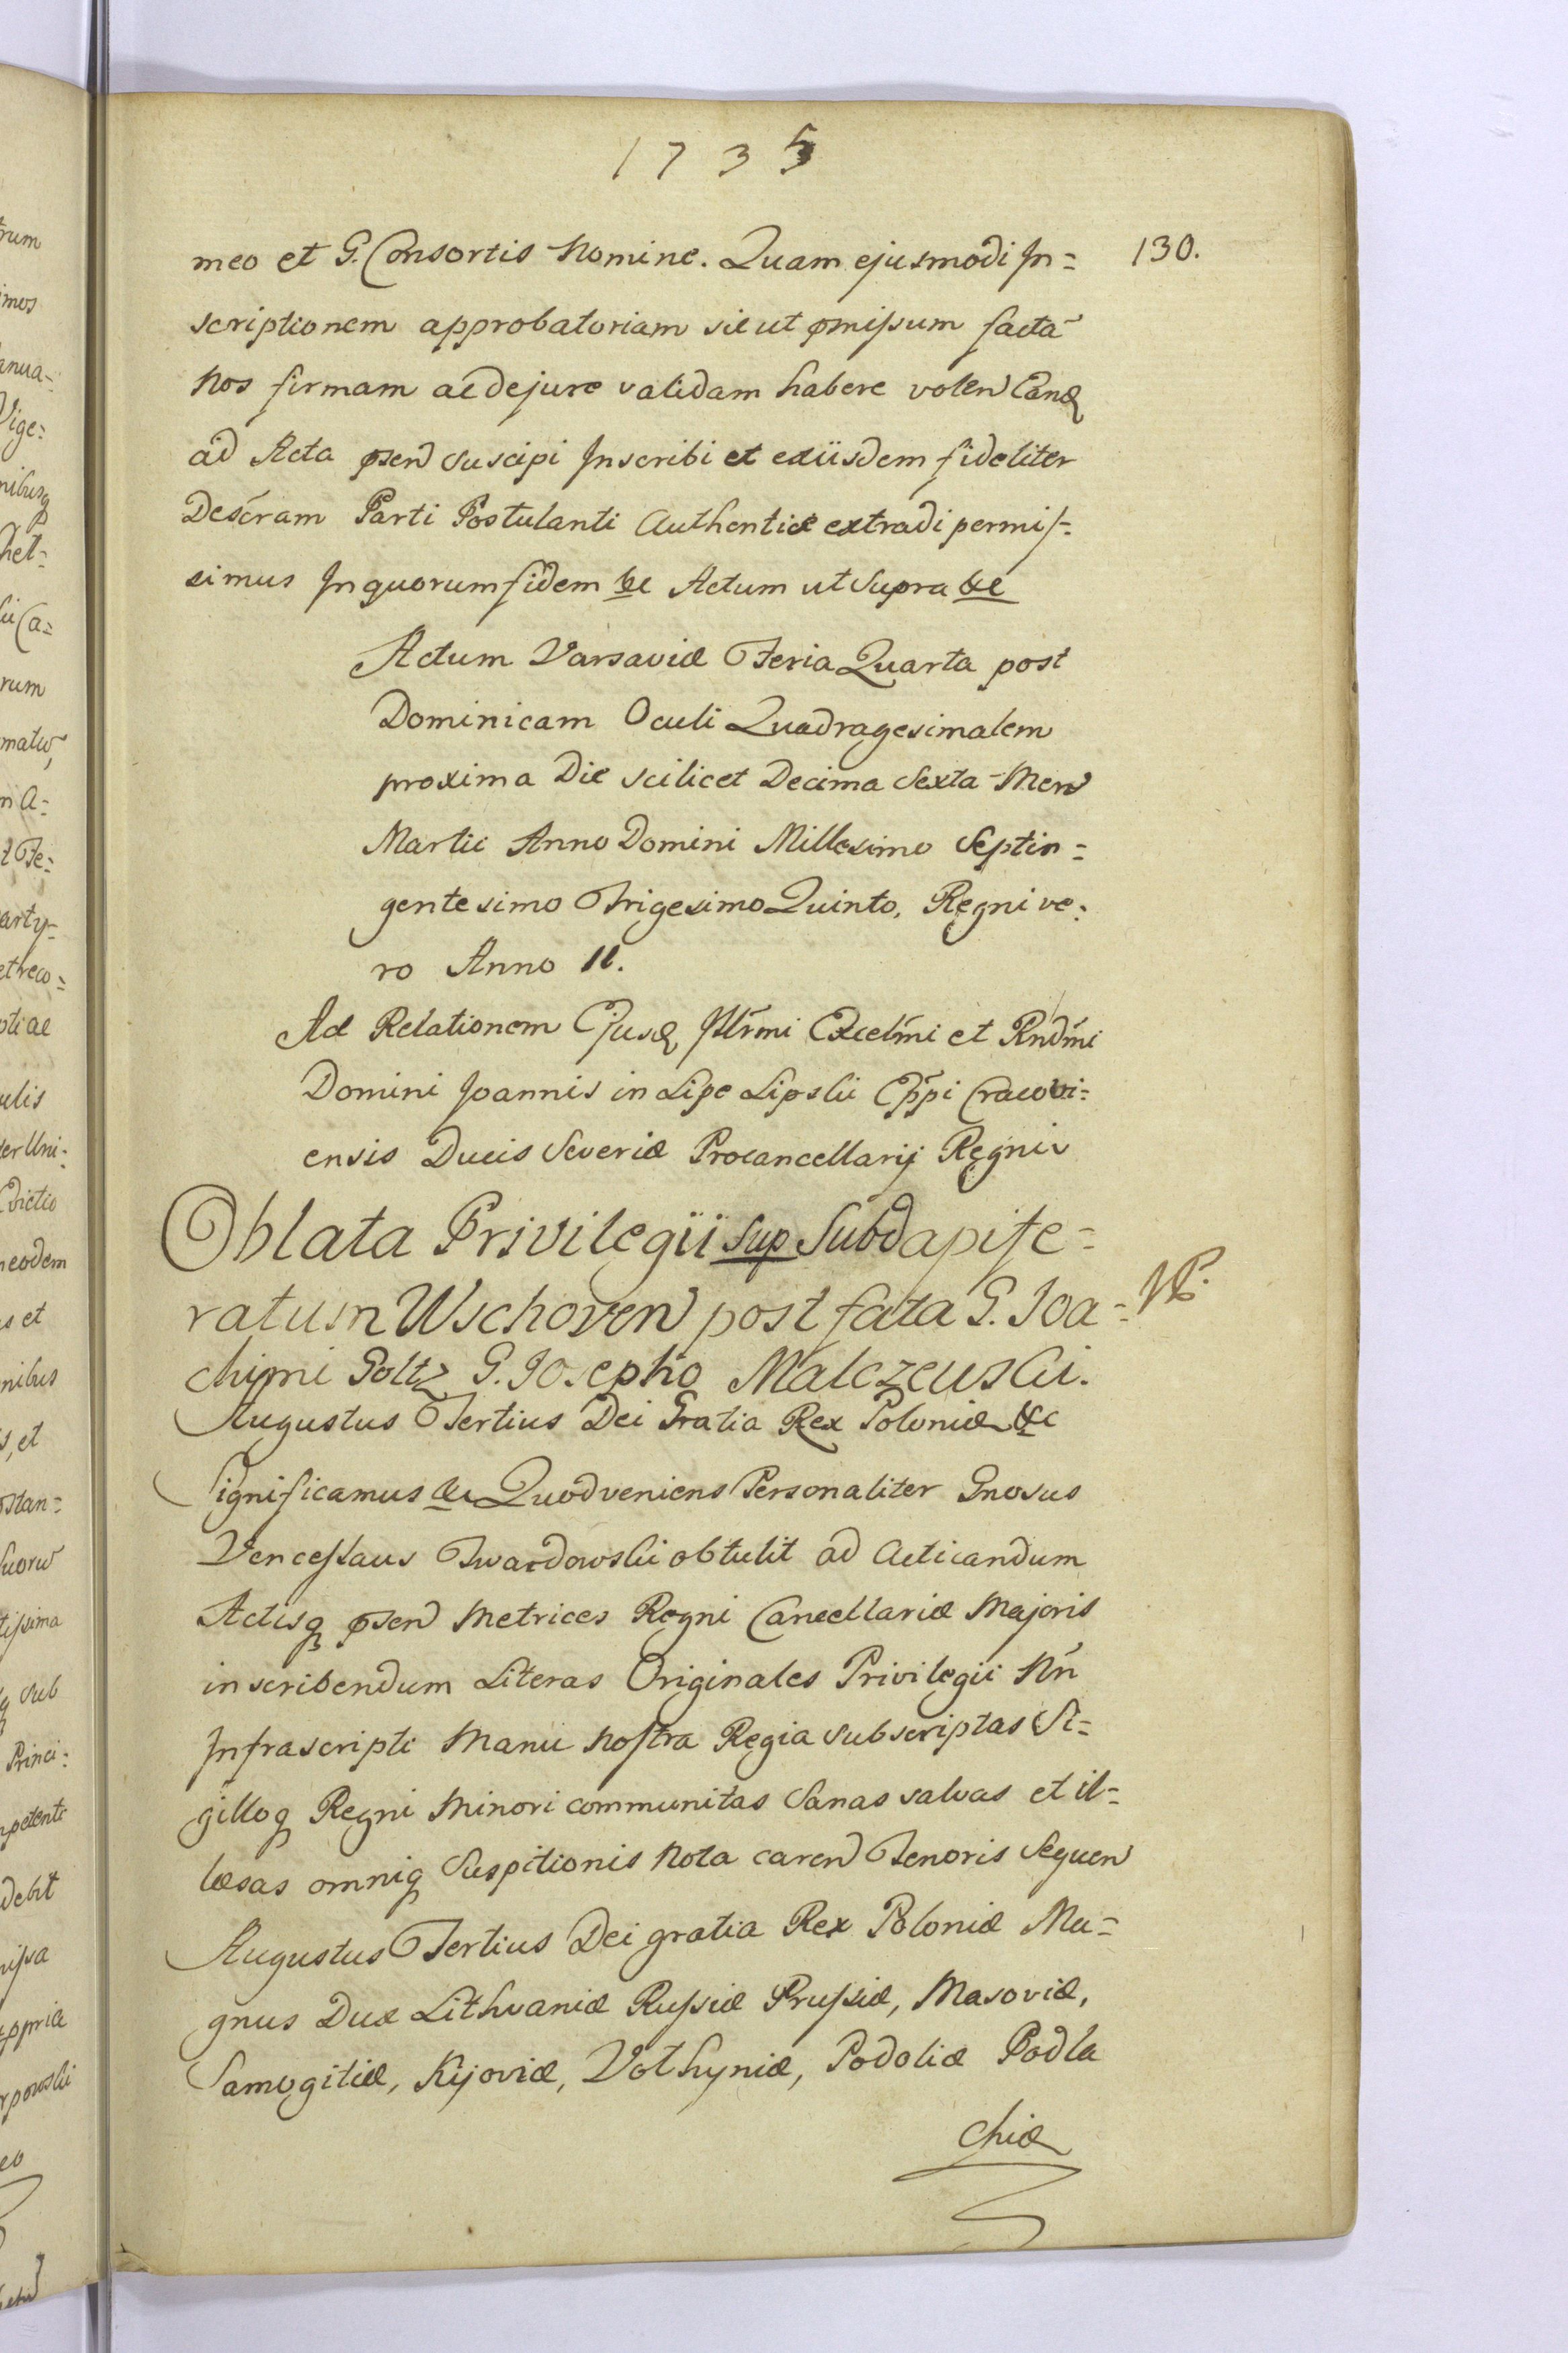 1735
130.
meo et G. Consortis Nomine. Quam ejusmodi In=
scriptionem approbatoriam sicut pmissum factā
Nos firmam ac de jure validam habere volen Eandq
ad Acta psen suscipi Inscribi et exiisdem fideliter
Descram Parti Postulanti Authentice extradi permis=
simus In quorum fidem &c Actum ut Supra &c
Actum Varsaviæ Feria Quarta post
Dominicam Oculi Quadragesimalem
proxima Die scilicet Decima Sexta Men
Martii Anno Domini Millesimo Septin=
gentesimo Trigesimo Quinto, Regni ve:
ro Anno II.
Ad Relationem Ejusd Illrmi Excelmi et Rndmi
Domini Joannis in Lipe Lipski Eppi Cracovi=
ensis Ducis Severiæ Procancellarij Regni
Oblata Privilegii sup Subdapife=
ratum Wschoven post fata G. Joa=
NB.
chimi Goltz G. Josepho Malczewski.
Augustus Tertius Dei Gratia Rex Poloniæ &c
Significamus &c Quod veniens Personaliter Gnosus
Venceslaus Twardowski obtulit ad Acticandum
Actisq psen Metrices Regni Cancellariæ Majoris
inscribendum Literas Originales Privilegii Nri
Infrascripti Manu Nostra Regia subscriptas Si=
gilloq Regni Minori communitas Sanas salvas et il=
læsas omniq Suspitionis Nota caren Tenoris Sequen
Augustus Tertius Dei gratia Rex Poloniæ Ma=
gnus Dux Lithvaniæ Russiæ Prussiæ, Masoviæ,
Samogitiæ, Kijoviæ, Volhyniæ, Podoliæ Podla
chiæ